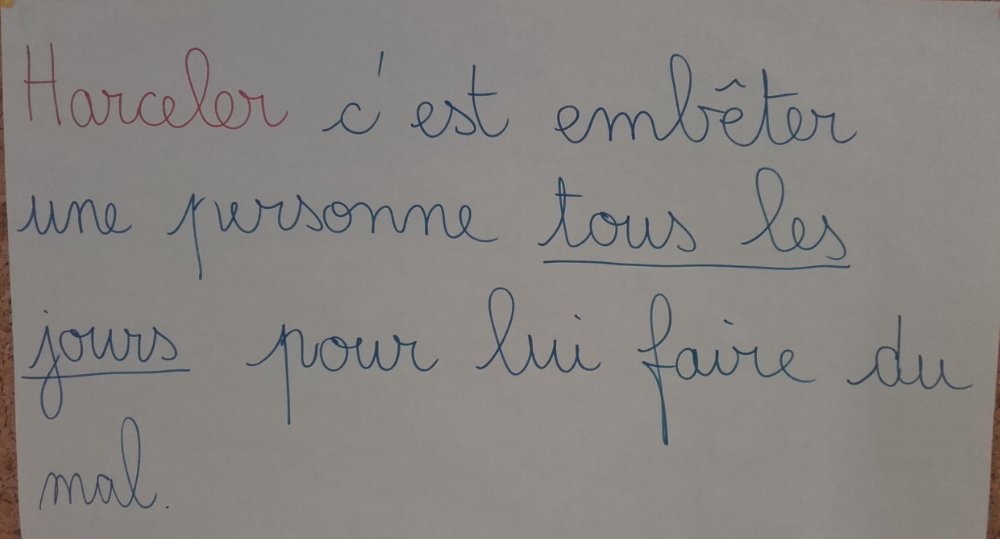 Harceler c'est embêter
une personne tous les
jours pour lui faire du
mal.